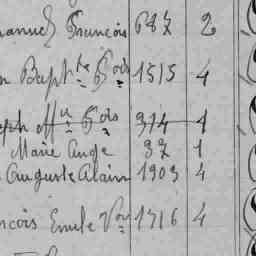 manuel François 687 2
n Bapt^te F^ois 1515 4
eph M^ie F^ois 314 1
Marie Ange 37 1
Auguste Alain 1903 4
ncois Emile V^or 1716 4